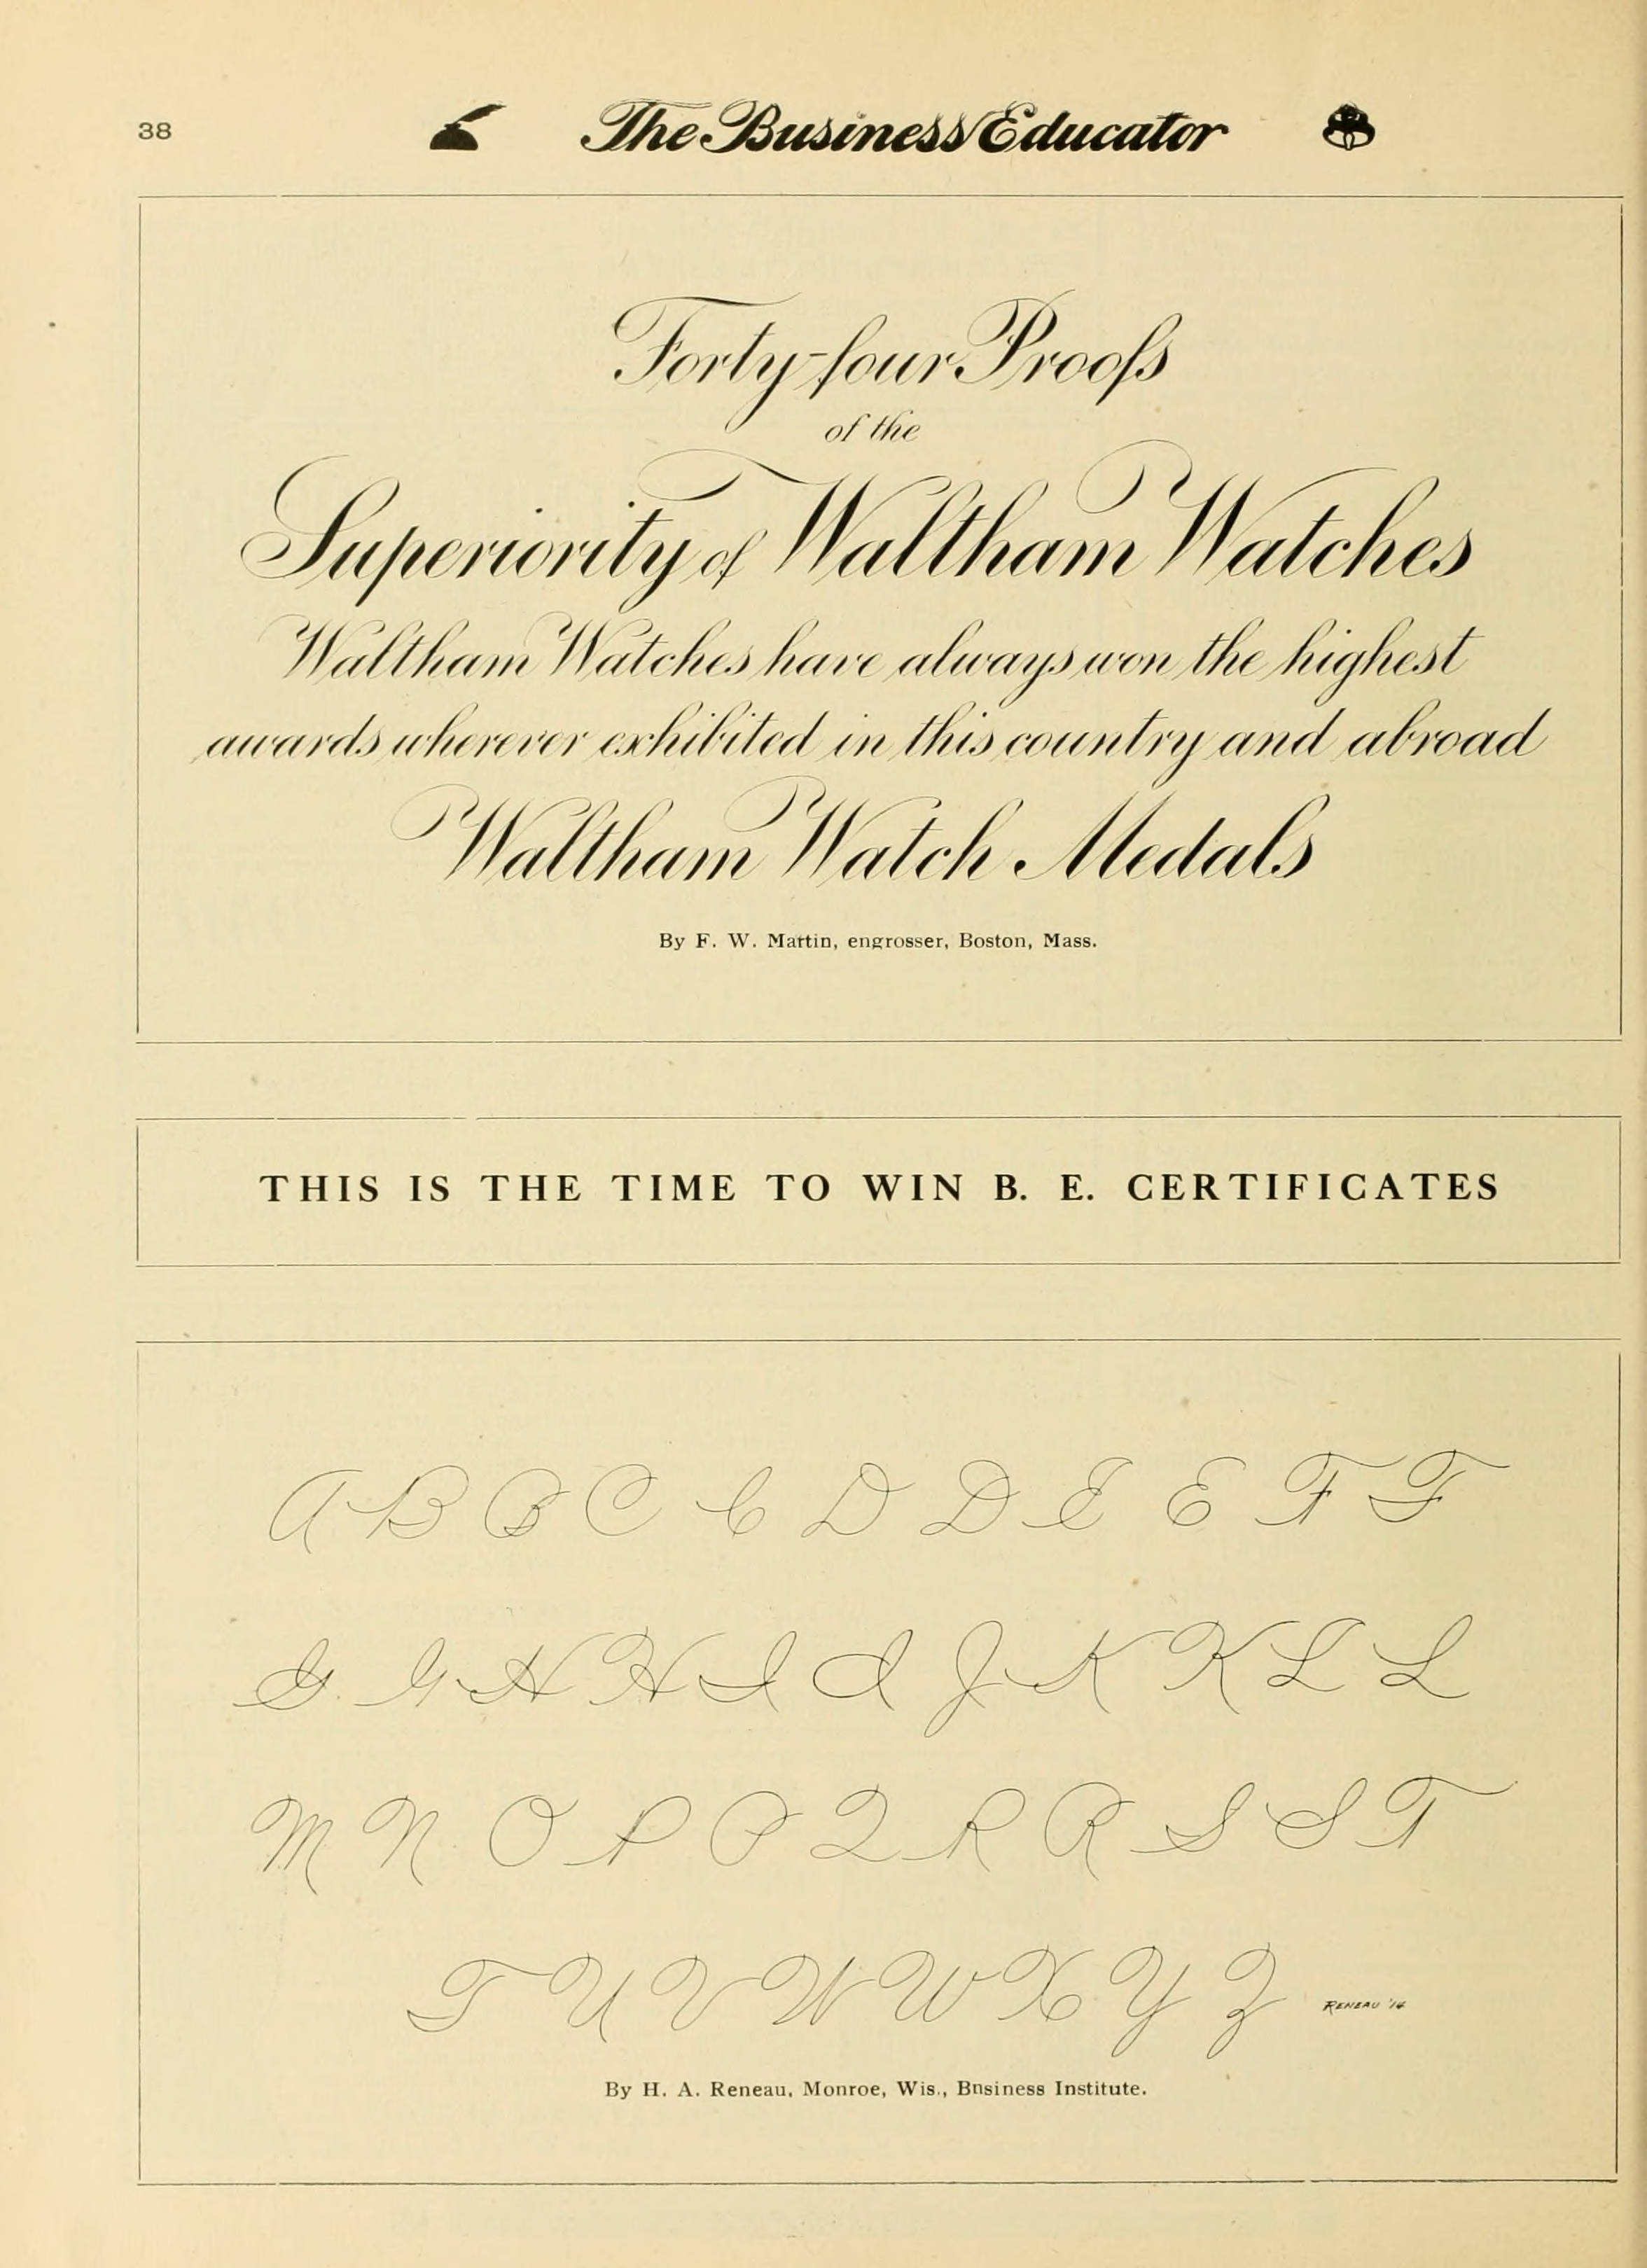 38
The Business Educator
Forty-four Proofs
of the
Superiority of Waltham Watches
Waltham Watches have always won the highest
awards wherever exhibited in this country and abroad
Waltham Watch Medals
By F. W. Martin, engrosser, Boston, Mass.
THIS IS THE TIME TO WIN B. E. CERTIFICATES
A B B C C D D E E F F
G G H H I I J K K L L
M N O P P Q R R S S T
T U V W W X Y Z RENEAU '14
By H. A. Reneau, Monroe, Wis., Bnsiness Institute.